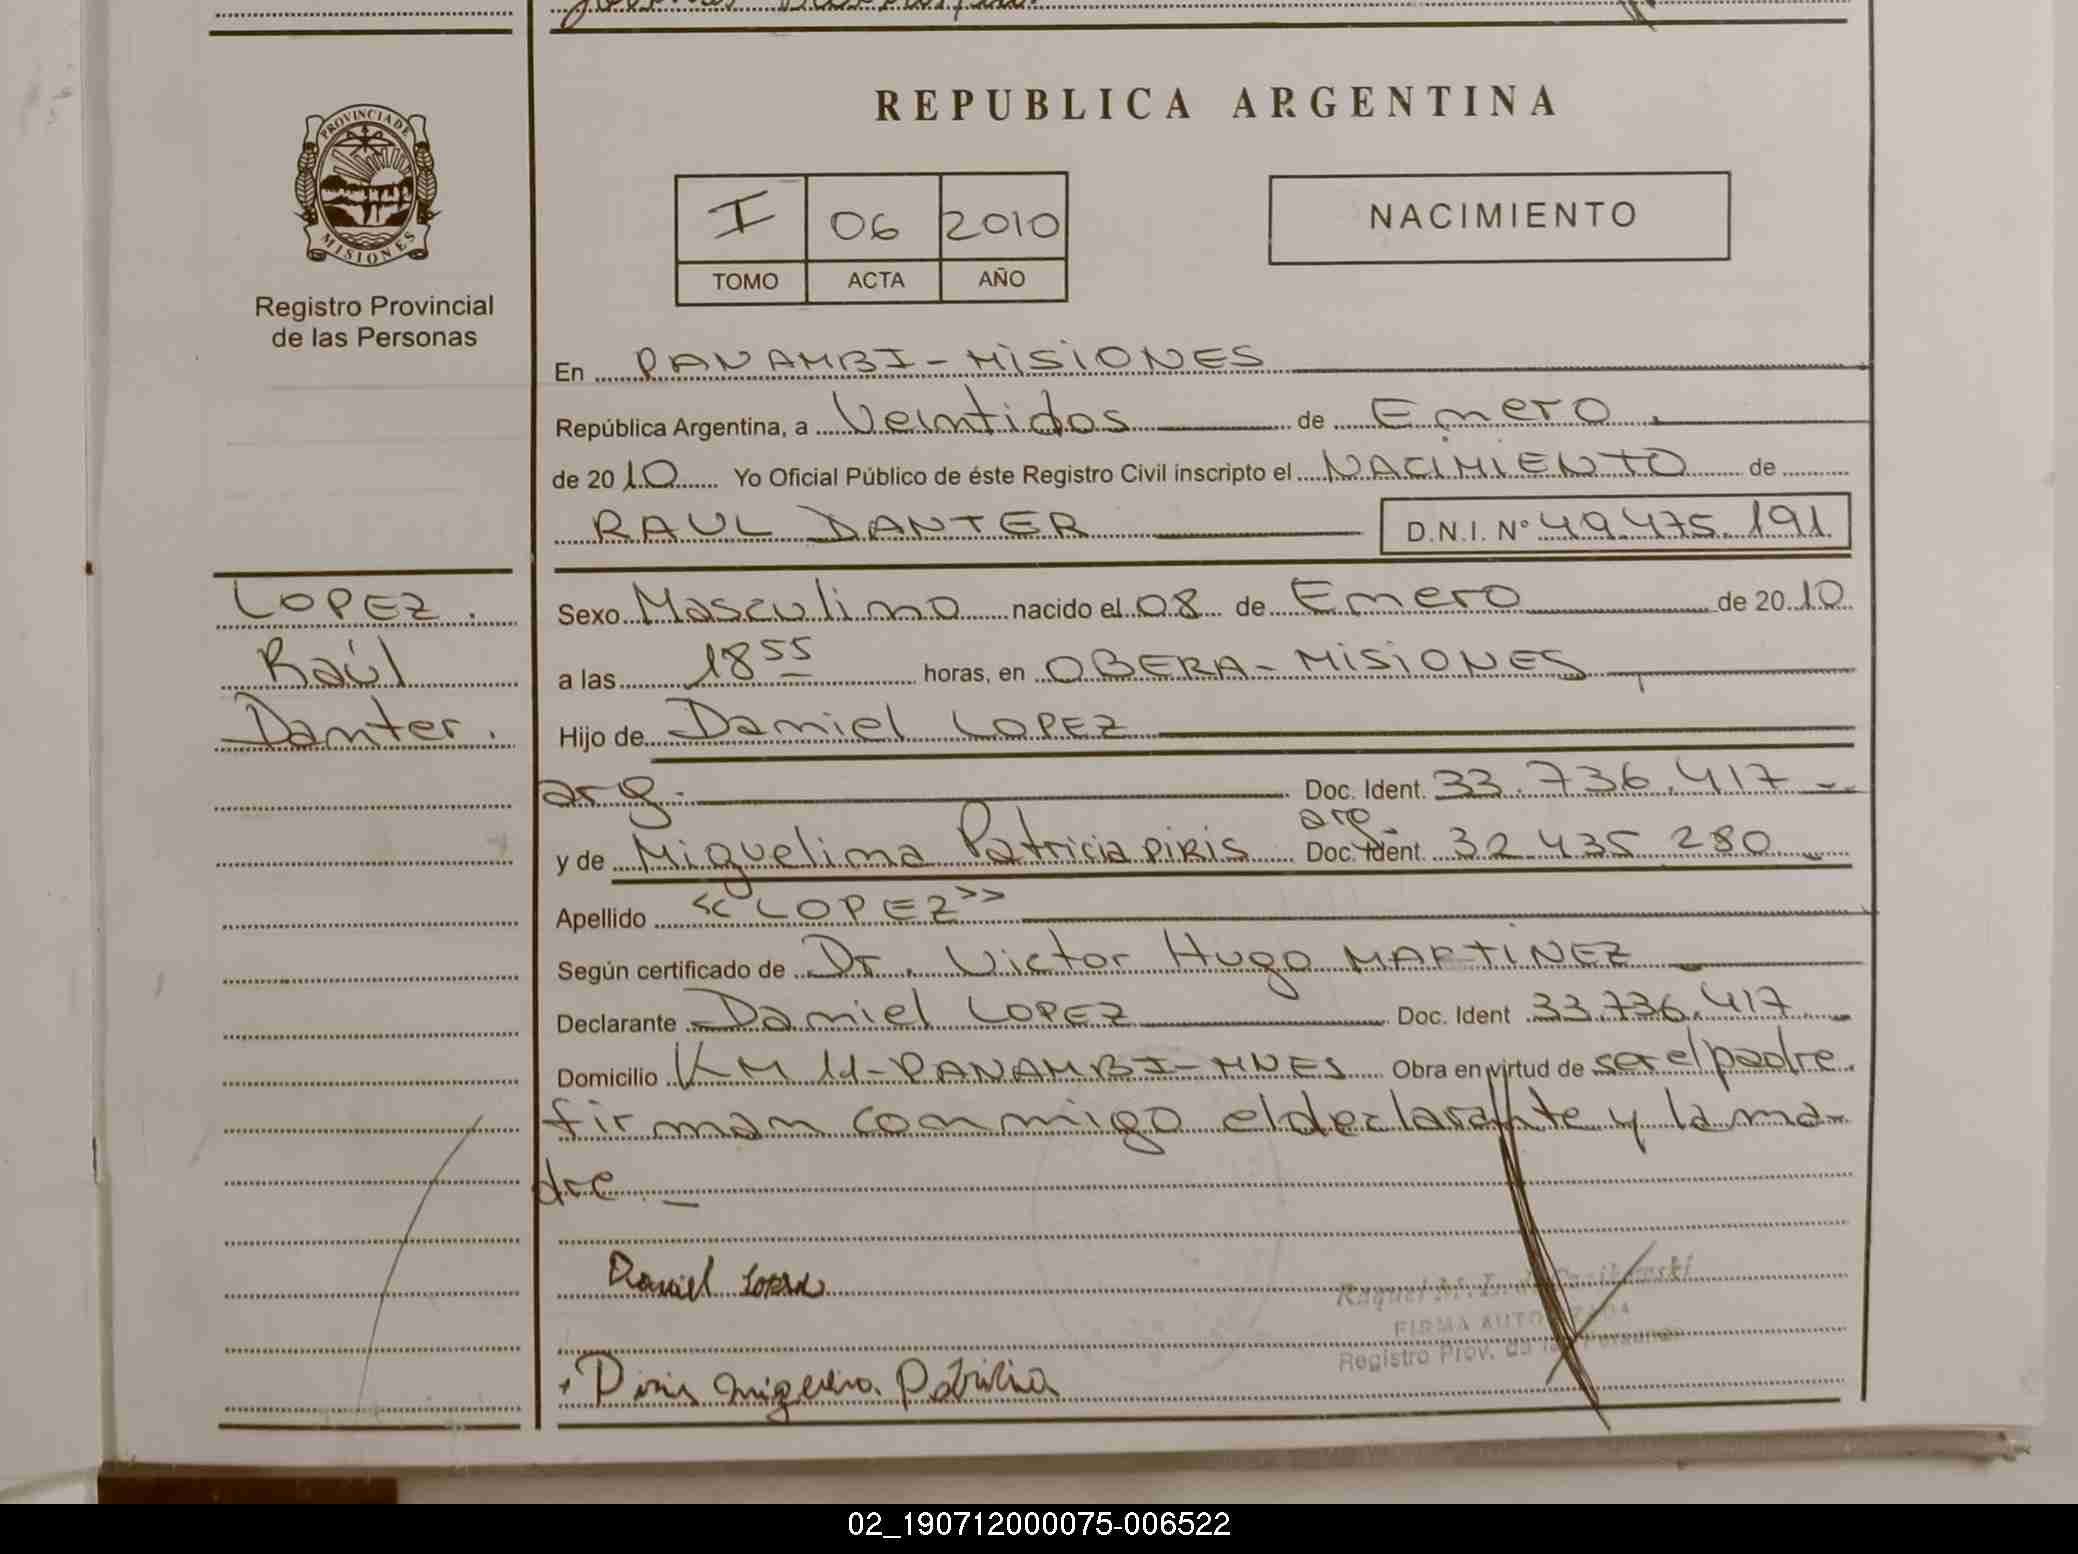 REPUBLICA ARGENTINA
PROVINCIA DE MISIONES
Registro Provincial
de las Personas
I 06 2010
TOMO ACTA AÑO
NACIMIENTO
En PANAMBI-MISIONES
República Argentina, a Veintidos de Enero
de 2010 Yo Oficial Público de éste Registro Civil inscripto el NACIMIENTO de
RAUL DANTER D.N.I. Nº 49.475.191
LOPEZ.
Raúl
Danter.
Sexo Masculino nacido el 08 de Enero de 2010
a las 18 55 horas, en OBERA-MISIONES
Hijo de Daniel LOPEZ
arg. Doc. Ident. 33.736.417
arg.
y de Miguelina Patricia PIRIS Doc. Ident. 32.435.280
Apellido «LOPEZ»
Según certificado de Dr. Victor Hugo MARTINEZ
Declarante Daniel LOPEZ Doc. Ident 33.736.417
Domicilio KM 11-PANAMBI-MNES Obra en virtud de ser el padre.
firman conmigo el declarante y la ma-
dre.
Daniel Lopez
FIRMA AUTORIZADA
Registro Prov. de las Personas
Piris Patricia
02_190712000075-006522